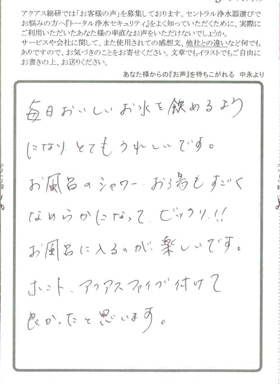 アクアス総研では「お客様の声」を募集しております。セントラル浄水器選びで
お悩みの方へ『トータル浄水セキュリティ』をよく知っていただくために、実際に
ご利用いただいたあなた様の率直なお声をいただけないでしょうか。
サービスや会社に関して、また使用されての感想文、他社との違いなど何でも
ありですので、お気づきのことをお寄せください。文章でもイラストでもご自由に
お書きの上、お送りください。
あなた様からの『お声』を待ちこがれる 中永より
毎日おいしいお水を飲めるよう
になり とてもうれしいです。
お風呂のシャワー・お湯も すごく
なめらかになって、ビックリ!!
お風呂に入るのが楽しいです。
ホント、アクアスファイブ付けて
良かったと思います。